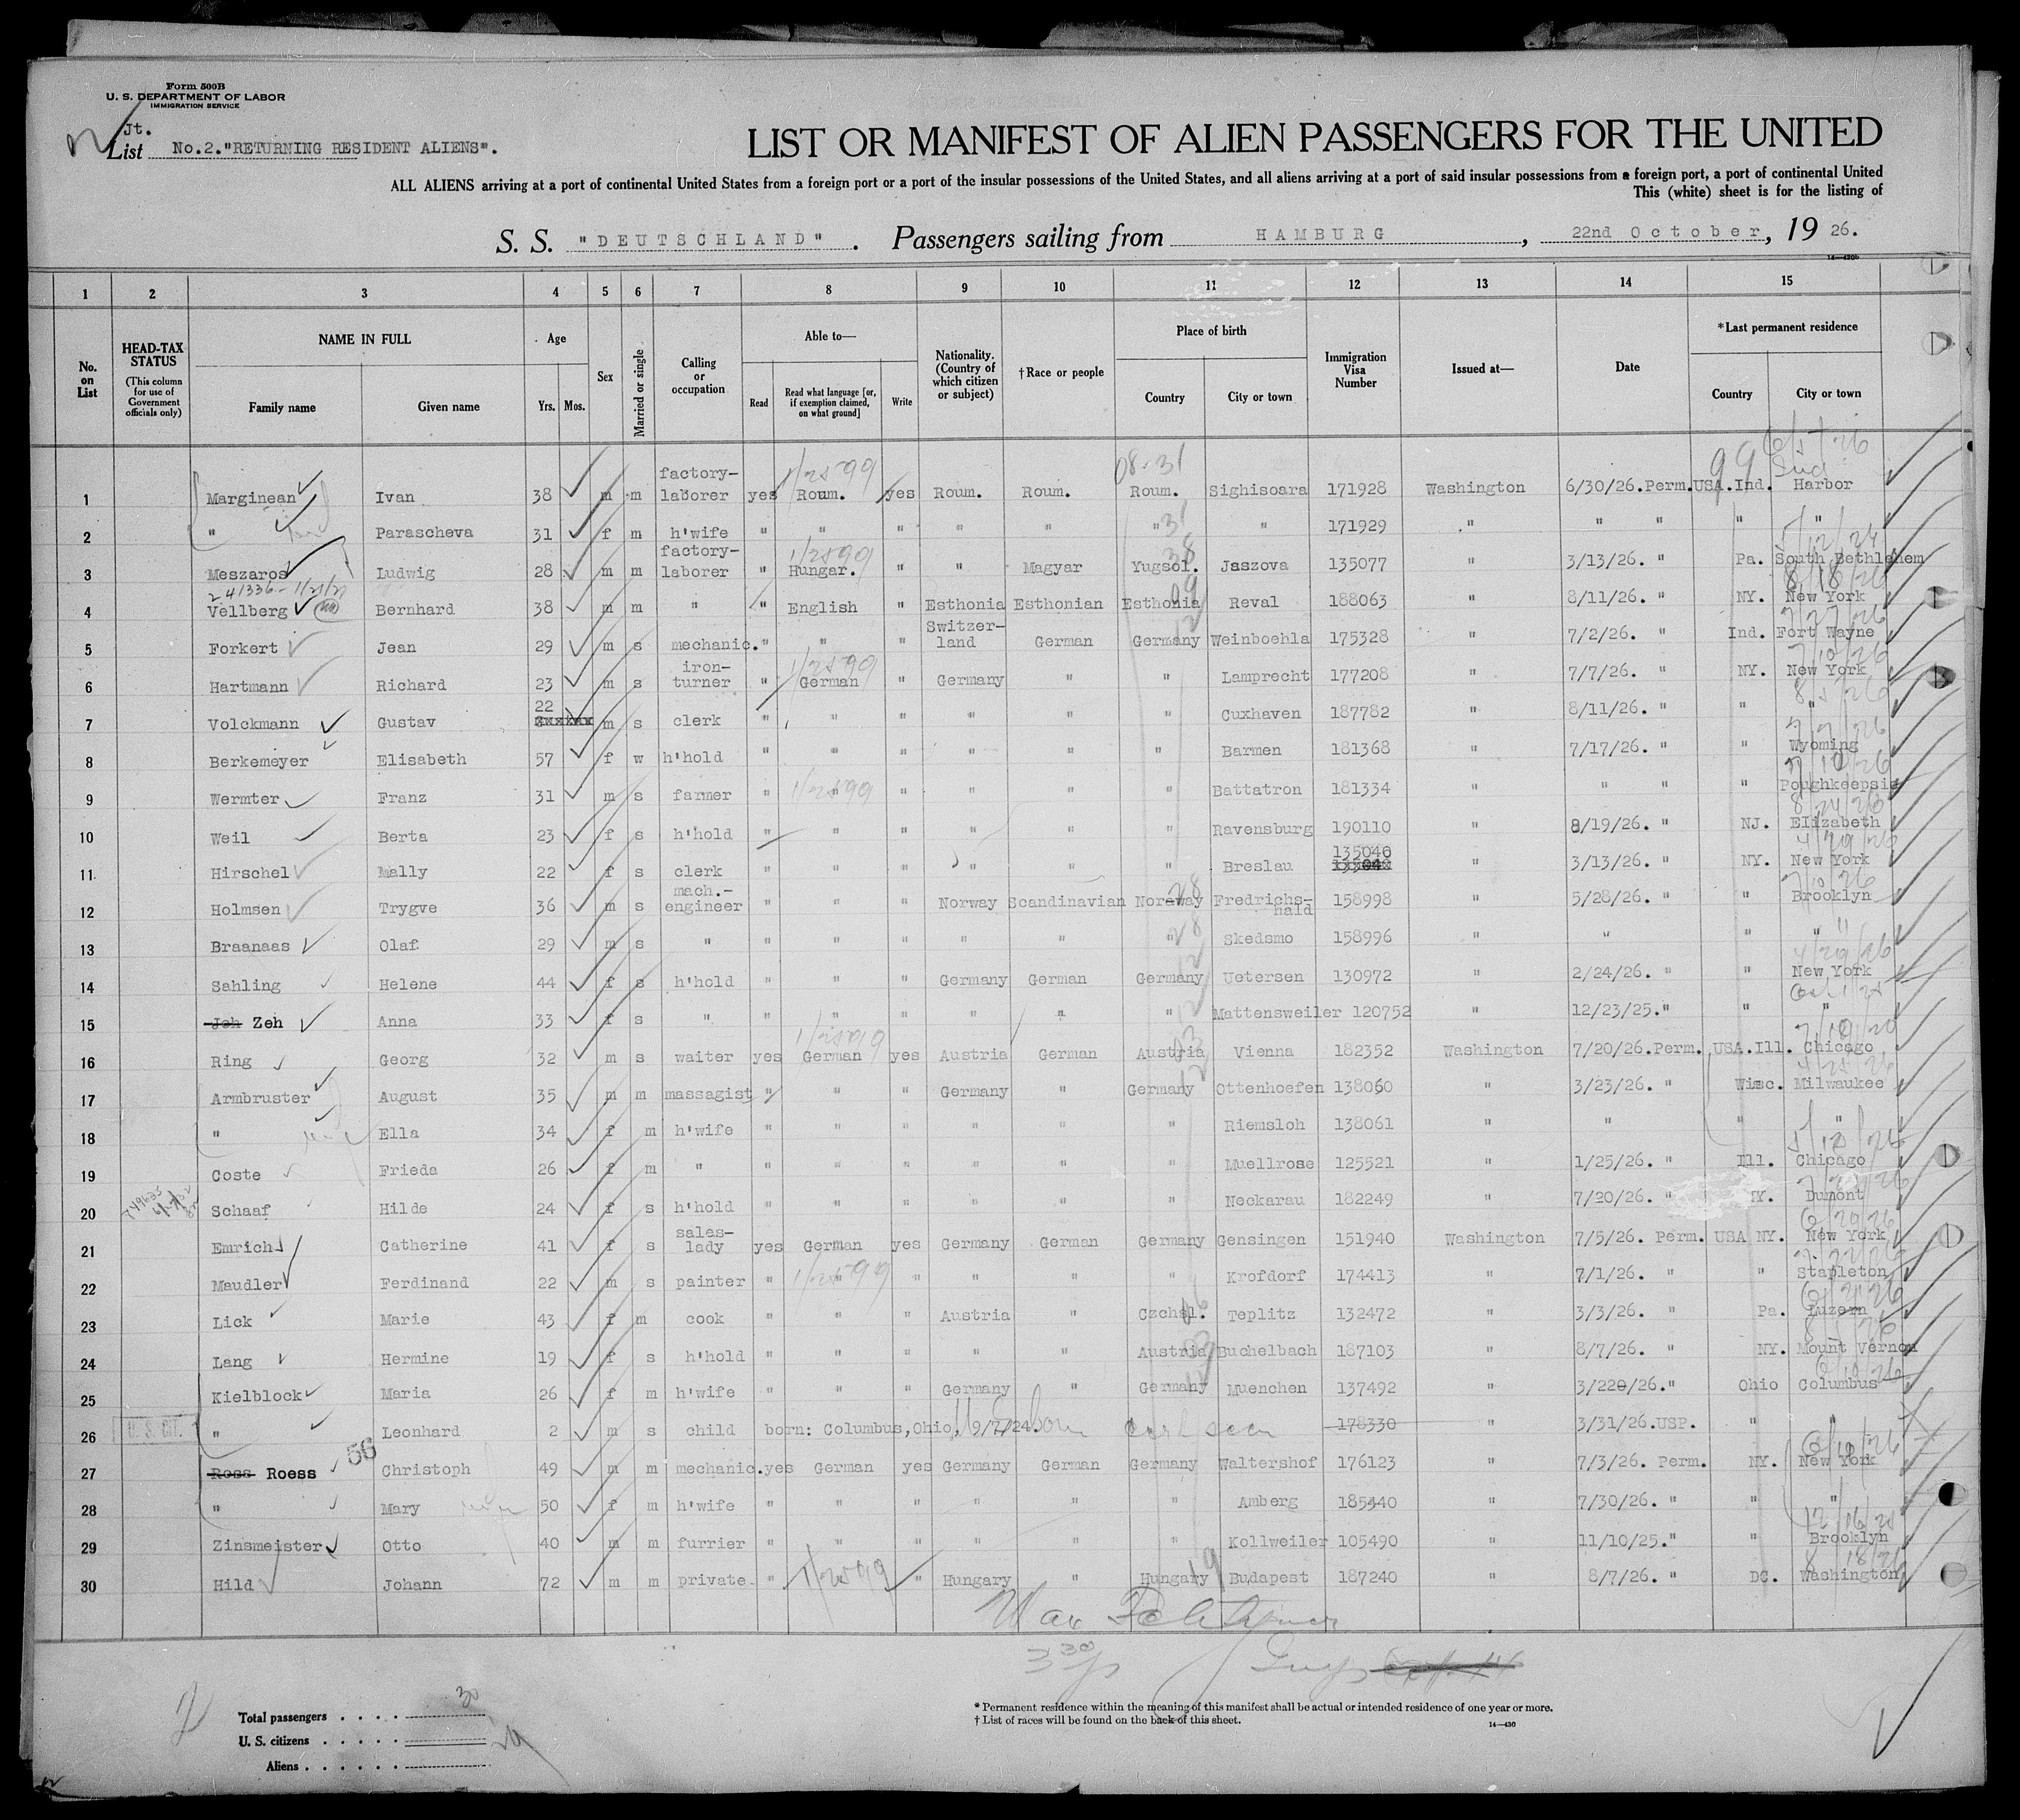 Form 500B
U. S. DEPARTMENT OF LABOR
IMMIGRATION SERVICE
Jt.
List No.2."RETURNING RESIDENT ALIENS".
LIST OR MANIFEST OF ALIEN PASSENGERS FOR THE UNITED
ALL ALIENS arriving at a port of continental United States from a foreign port or a port of the insular possessions of the United States, and all aliens arriving at a port of said insular possessions from a foreign port, a port of continental United
This (white) sheet is for the listing of
S. S. "DEUTSCHLAND". Passengers sailing from HAMBURG, 22nd October, 19 26.
14—430b
1 2 3 4 5 6 7 8 9 10 11 12 13 14 15
No. on List
HEAD-TAX STATUS (This column for use of Government officials only)
NAME IN FULL Family name Given name
Age Yrs. Mos.
Sex
Married or single
Calling or occupation
Able to— Read Read what language [or, if exemption claimed, on what ground] Write
Nationality. (Country of which citizen or subject)
†Race or people
Place of birth Country City or town
Immigration Visa Number
Issued at—
Date
*Last permanent residence Country City or town
1 Marginean Ivan 38 m m factory-laborer yes Roum. yes Roum. Roum. Roum. Sighisoara 171928 Washington 6/30/26.Perm. USA.Ind. Harbor
2 " Parascheva 31 f m h'wife " " " " " " " 171929 " " " " "
3 Meszaros Ludwig 28 m m factory-laborer " Hungar. " " Magyar Yugsol. Jaszova 135077 " 3/13/26. " Pa. South Bethlehem
4 Vellberg Bernhard 38 m m " " English " Esthonia Esthonian Esthonia Reval 188063 " 8/11/26. " NY. New York
5 Forkert Jean 29 m s mechanic. " " " Switzer-land German Germany Weinboehla 175328 " 7/2/26. " Ind. Fort Wayne
6 Hartmann Richard 23 m s iron-turner " German " Germany " " Lamprecht 177208 " 7/7/26. " NY. New York
7 Volckmann Gustav 22 m s clerk " " " " " " Cuxhaven 187782 " 8/11/26. " " "
8 Berkemeyer Elisabeth 57 f w h'hold " " " " " " Barmen 181368 " 7/17/26. " " Wyoming
9 Wermter Franz 31 m s farmer " " " " " " Battatron 181334 " " " " Poughkeepsie
10 Weil Berta 23 f s h'hold " " " " " " Ravensburg 190110 " 8/19/26. " NJ. Elizabeth
11 Hirschel Mally 22 f s clerk " " " " " " Breslau 135040 " 3/13/26. " NY. New York
12 Holmsen Trygve 36 m s mach.-engineer " " " Norway Scandinavian Norway Fredrichs-hald 158998 " 5/28/26. " " Brooklyn
13 Braanaas Olaf 29 m s " " " " " " " Skedsmo 158996 " " " "
14 Sahling Helene 44 f s h'hold " " " Germany German Germany Uetersen 130972 " 2/24/26. " " New York
15 Jeh Zeh Anna 33 f s " " " " " " " Mattensweiler 120752 " 12/23/25." " "
16 Ring Georg 32 m s waiter yes German yes Austria German Austria Vienna 182352 Washington 7/20/26.Perm. USA.Ill. Chicago
17 Armbruster August 35 m m massagist " " " Germany " Germany Ottenhoefen 138060 " 3/23/26. " Wisc. Milwaukee
18 " Ella 34 f m h'wife " " " " " " Riemsloh 138061 " " " "
19 Coste Frieda 26 f m " " " " " " " Muellrose 125521 " 1/25/26. " Ill. Chicago
20 Schaaf Hilde 24 f s h'hold " " " " " " Neckarau 182249 " 7/20/26. " Y. Dumont
21 Emrich Catherine 41 f s sales-lady yes German yes Germany German Germany Gensingen 151940 Washington 7/5/26. Perm. USA NY. New York
22 Maudler Ferdinand 22 m s painter " " " " " " Krofdorf 174413 " 7/1/26. " " Stapleton
23 Lick Marie 43 f m cook " " " Austria " Czchsl. Teplitz 132472 " 3/3/26. " Pa. Luzern
24 Lang Hermine 19 f s h'hold " " " " " Austria Buchelbach 187103 " 8/7/26. " NY. Mount Vernon
25 Kielblock Maria 26 f m h'wife " " " Germany " Germany Muenchen 137492 " 3/220/26." Ohio Columbus
26 U. S. CIT. " Leonhard 2 m s child born: Columbus,Ohio, 9/7/24. 178330 " 3/31/26.USP. " "
56
27 Ross Roess Christoph 49 m m mechanic. yes German yes Germany German Germany Waltershof 176123 " 7/3/26. Perm. NY. New York
28 " Mary 50 f m h'wife " " " " " " Amberg 185440 " 7/30/26. " " "
29 Zinsmeister Otto 40 m m furrier " " " " " " Kollweiler 105490 " 11/10/25." " Brooklyn
30 Hild Johann 72 m m private " " Hungary " Hungary Budapest 187240 " 8/7/26. " DC. Washington
Total passengers . . . . 30
U. S. citizens . . . . .
Aliens . . . . . .
* Permanent residence within the meaning of this manifest shall be actual or intended residence of one year or more.
† List of races will be found on the back of this sheet.
14—430